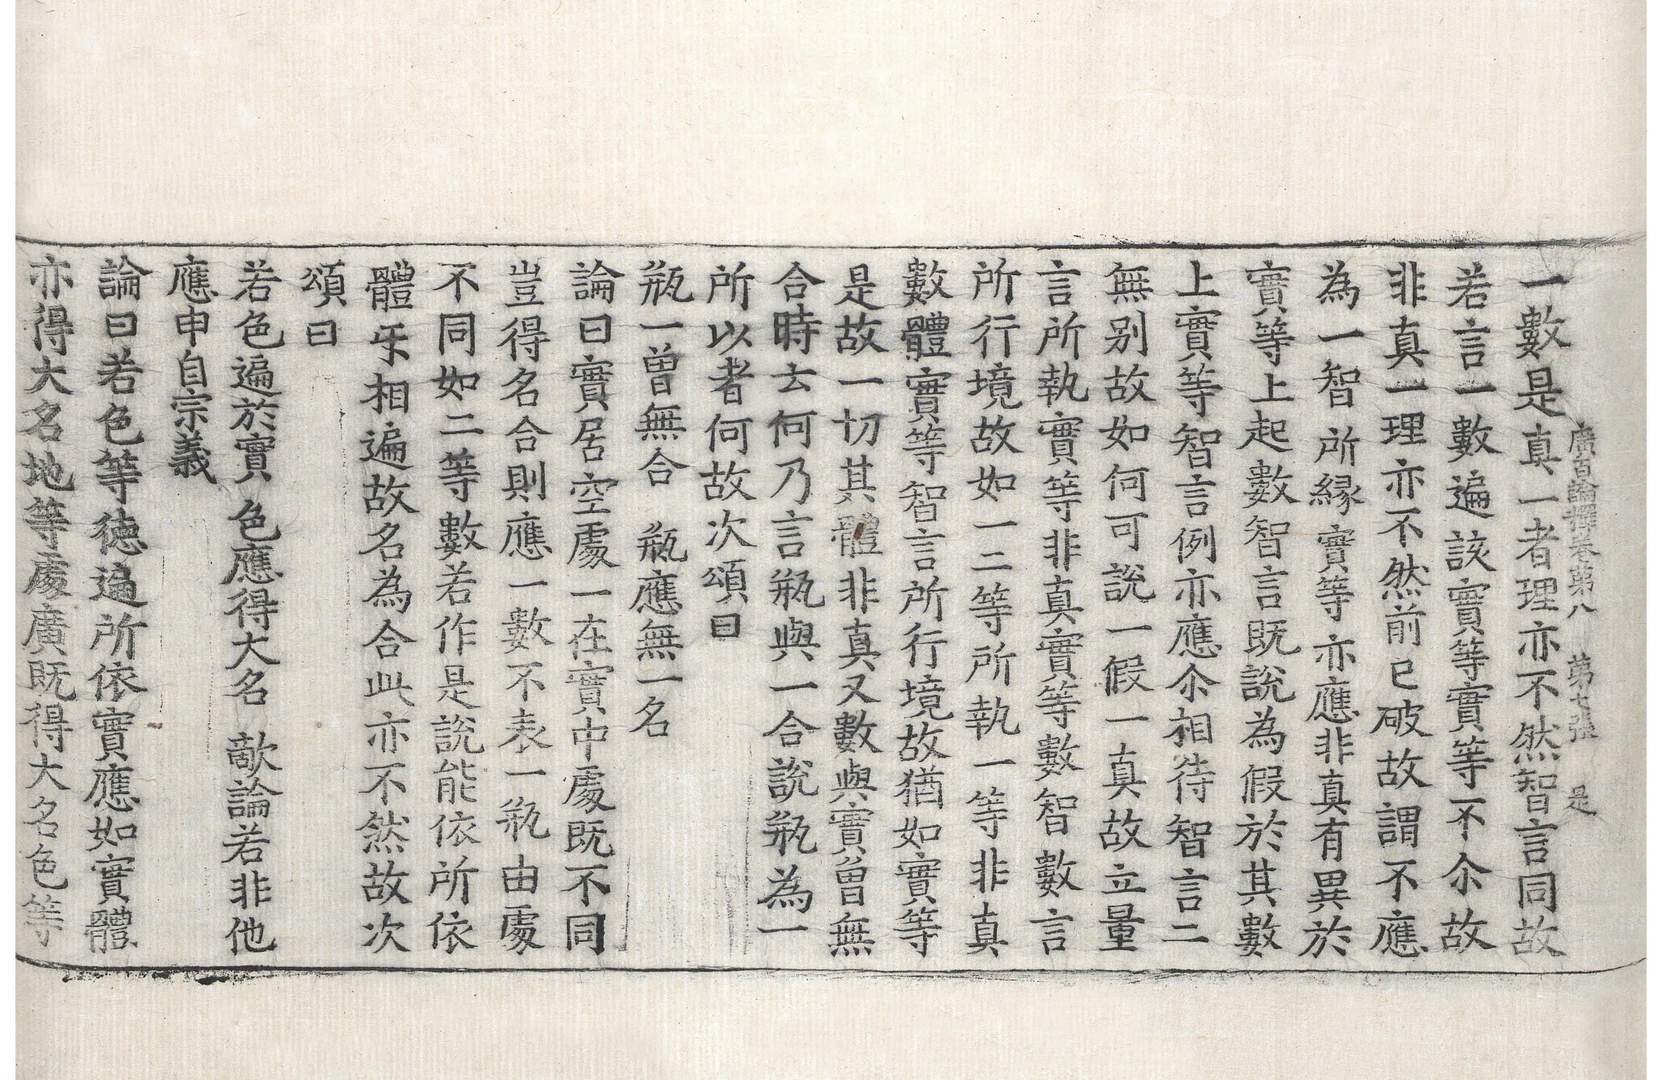 廣百論釋卷第八　第七張　是
一數是真一者理亦不然智言同故
若言一數遍該實等實等不尒故
非真一理亦不然前已破故謂不應
為一智所緣實等亦應非真有異於
實等上起數智言既說為假於其數
上實等智言例亦應尒相待智言二
無別故如何可說一假一真故立量
言所執實等非真實等數智數言
所行境故如一二等所執一等非真
數體實等智言所行境故猶如實等
是故一切其體非真又數與實曾無
合時云何乃言瓶與一合說瓶為一
所以者何故次頌曰
瓶一曾無合　瓶應無一名
論曰實居空處一在實中處既不同
豈得名合則應一數不表一瓶由處
不同如二等數若作是說能依所依
體㸦相遍故名為合此亦不然故次
頌曰
若色遍於實　色應得大名　敵論若非他
應申自宗義
論曰若色等德遍所依實應如實體
亦得大名地等處廣既得大名色等